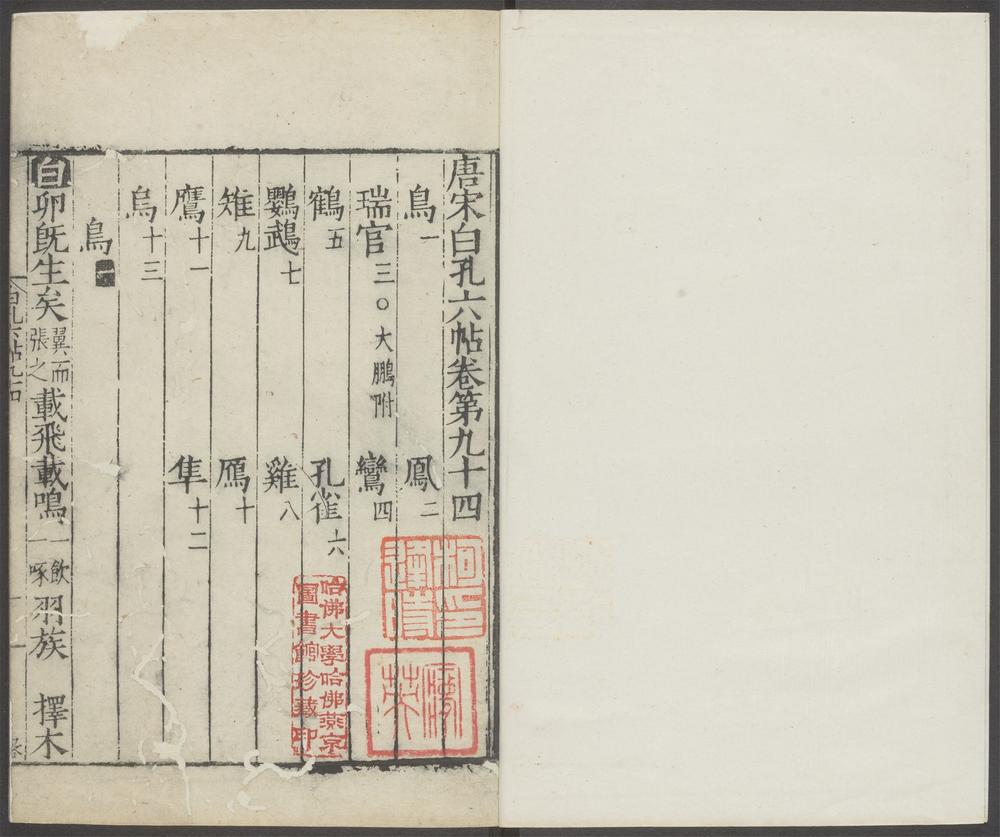 唐宋白孔六帖卷第九十四
鳥一 鳳二
瑞官三○大鵬附 鸞四
鶴五 孔雀六
鸚鵡七 雞八
雉九 鴈十
鷹十一 隼十二
烏十三
鳥一
白卵旣生矣翼而張之載飛載鳴一飲一啄羽族 擇木
哈佛大學哈佛燕京
圖書館珍藏印